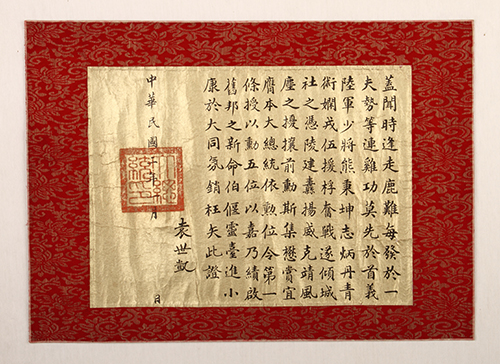 蓋聞時逢走鹿難每發於一
夫勢等連雞功莫先於首義
陸軍少將熊秉坤志炳丹青
術嫻戎伍援桴奮戰遂傾城
社之憑陵建纛揚威克靖風
塵之擾攘前勳斯集懋賞宜
膺本大總統依勲位令第一
條授以勳五位以嘉乃績啟
舊邦之新命伯偃靈臺進小
康於大同氛銷枉矢此證
袁世凱
中華民國年月日